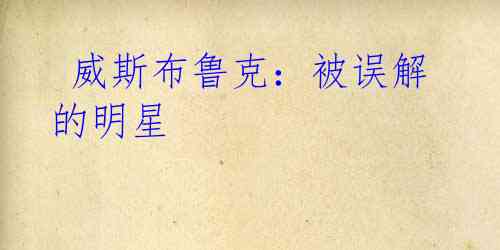 威斯布鲁克：被误解
的明星